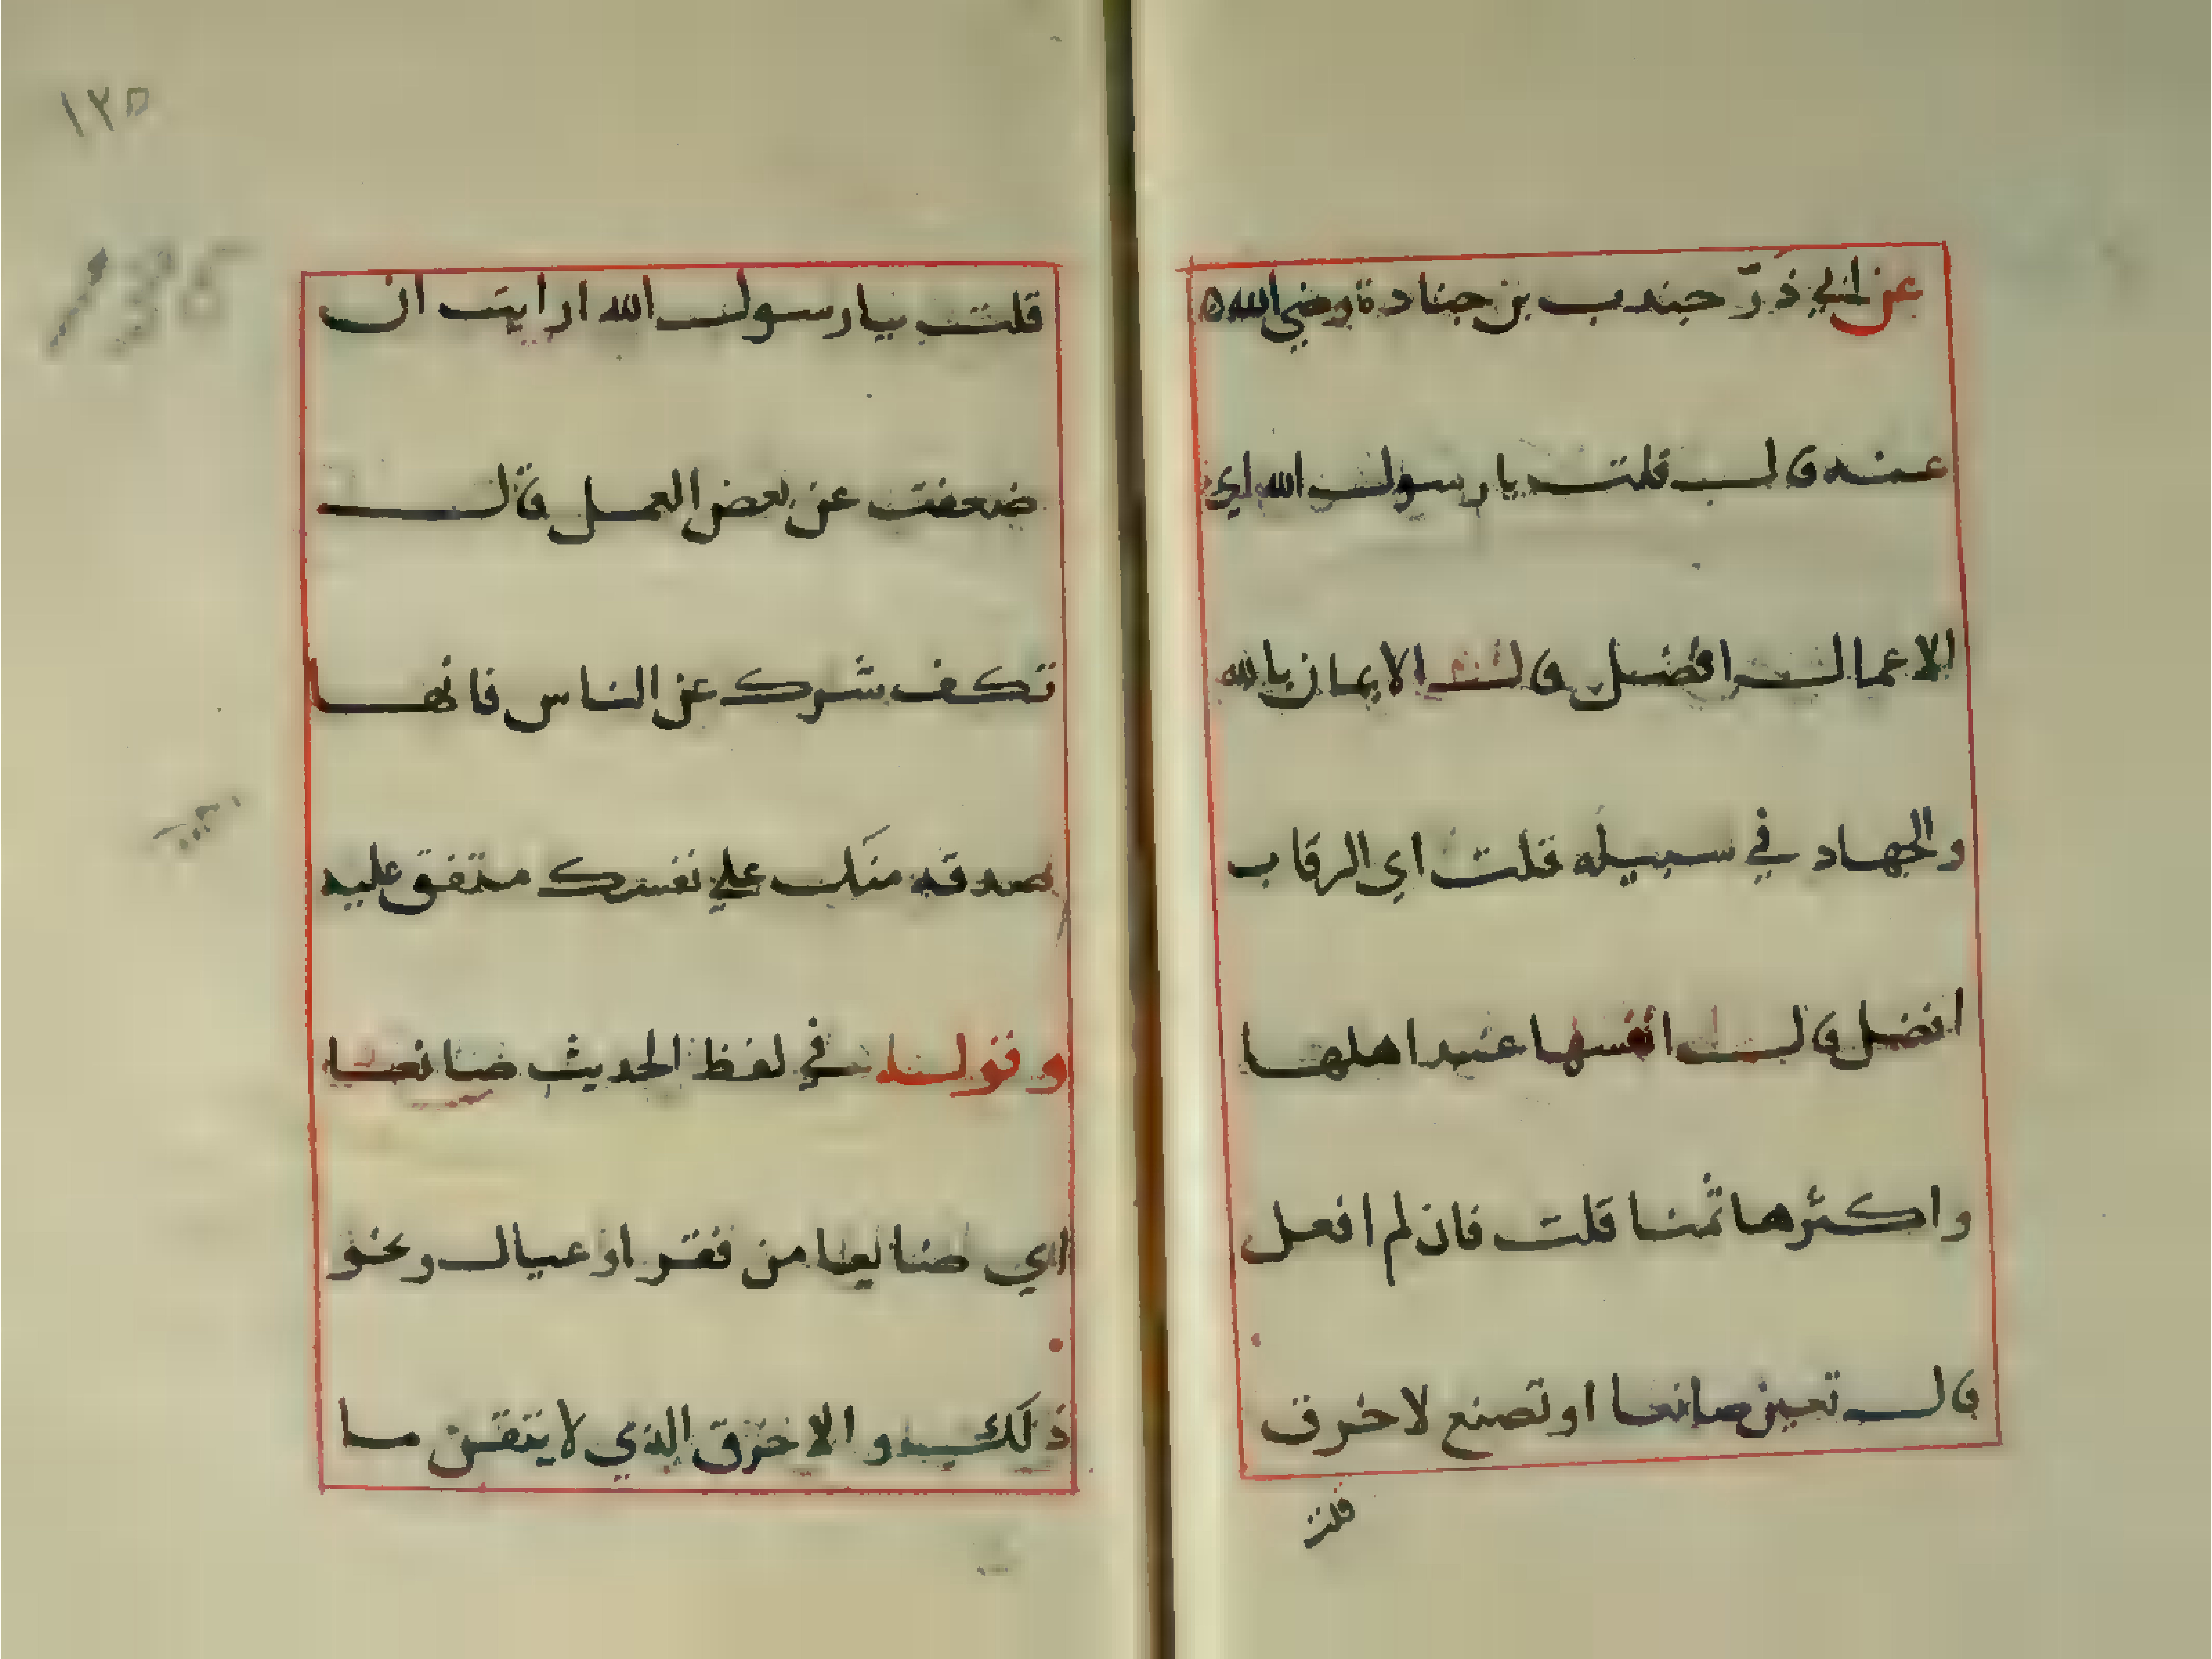 عن ابي ذرّ جندب بن جنادة رضي الله
عنه قال قلت يا رسول الله اي
الاعمال افضل قال الايمان بالله
والجهاد في سبيله قلت اي الرقاب
افضل قال انفسها عند اهلها
واكثرها ثمنا قلت فان لم افعل
قال تعين صانعا او تصنع لاخرق
قلت
١٢٥
135
قلت يا رسول الله ارايت ان
ضعفت عن بعض العمل قال
تكف شرك عن الناس فانها
صدقه منك علي نفسك متفق عليه
وقوله في لفظ الحديث ضائعا
اي ضائعا من فقر او عيال ونحو
ذلك والاخرق الذي لا يتقن ما